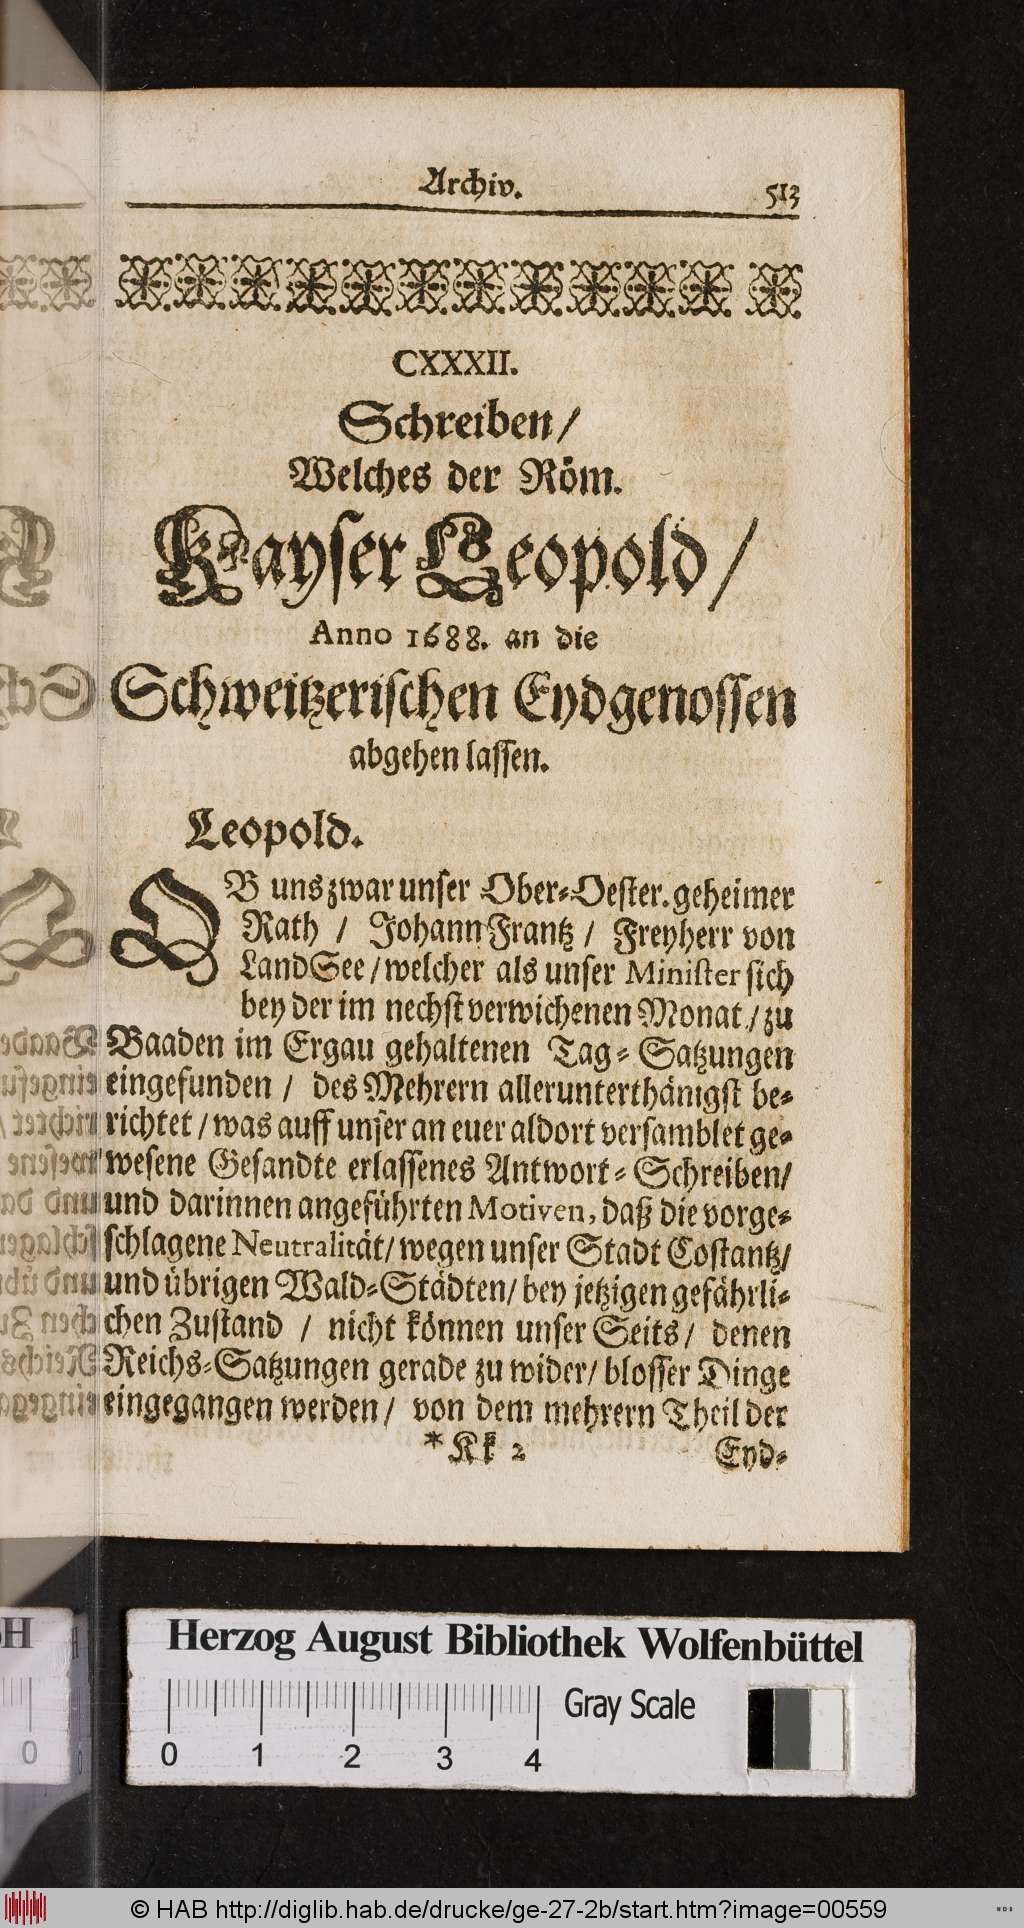 Archiv. 513
CXXXII.
Schreiben/
Welches der Röm.
Kayser Leopold/
Anno 1688. an die
Schweitzerischen Eydgenossen
abgehen lassen.
Leopold.
OB uns zwar unser Ober-Oester. geheimer
Rath / Johann Frantz / Freyherr von
LandSee/welcher als unser Minister sich
bey der im nechst verwichenen Monat/ zu
Baaden im Ergau gehaltenen Tag-Satzungen
eingefunden / des Mehrern allerunterthänigst be-
richtet / was auff unser an euer aldort versamblet ge-
wesene Gesandte erlassenes Antwort-Schreiben/
und darinnen angeführten Motiven, daß die vorge-
schlagene Neutralität/ wegen unser Stadt Costantz/
und übrigen Wald-Städten/ bey jetzigen gefährli-
chen Zustand / nicht können unser Seits/ denen
Reichs-Satzungen gerade zu wider/ blosser Dinge
eingegangen werden/ von dem mehrern Theil der
*Kk 2 Eyd-
Herzog August Bibliothek Wolfenbüttel
Gray Scale
0 1 2 3 4
© HAB http://diglib.hab.de/drucke/ge-27-2b/start.htm?image=00559